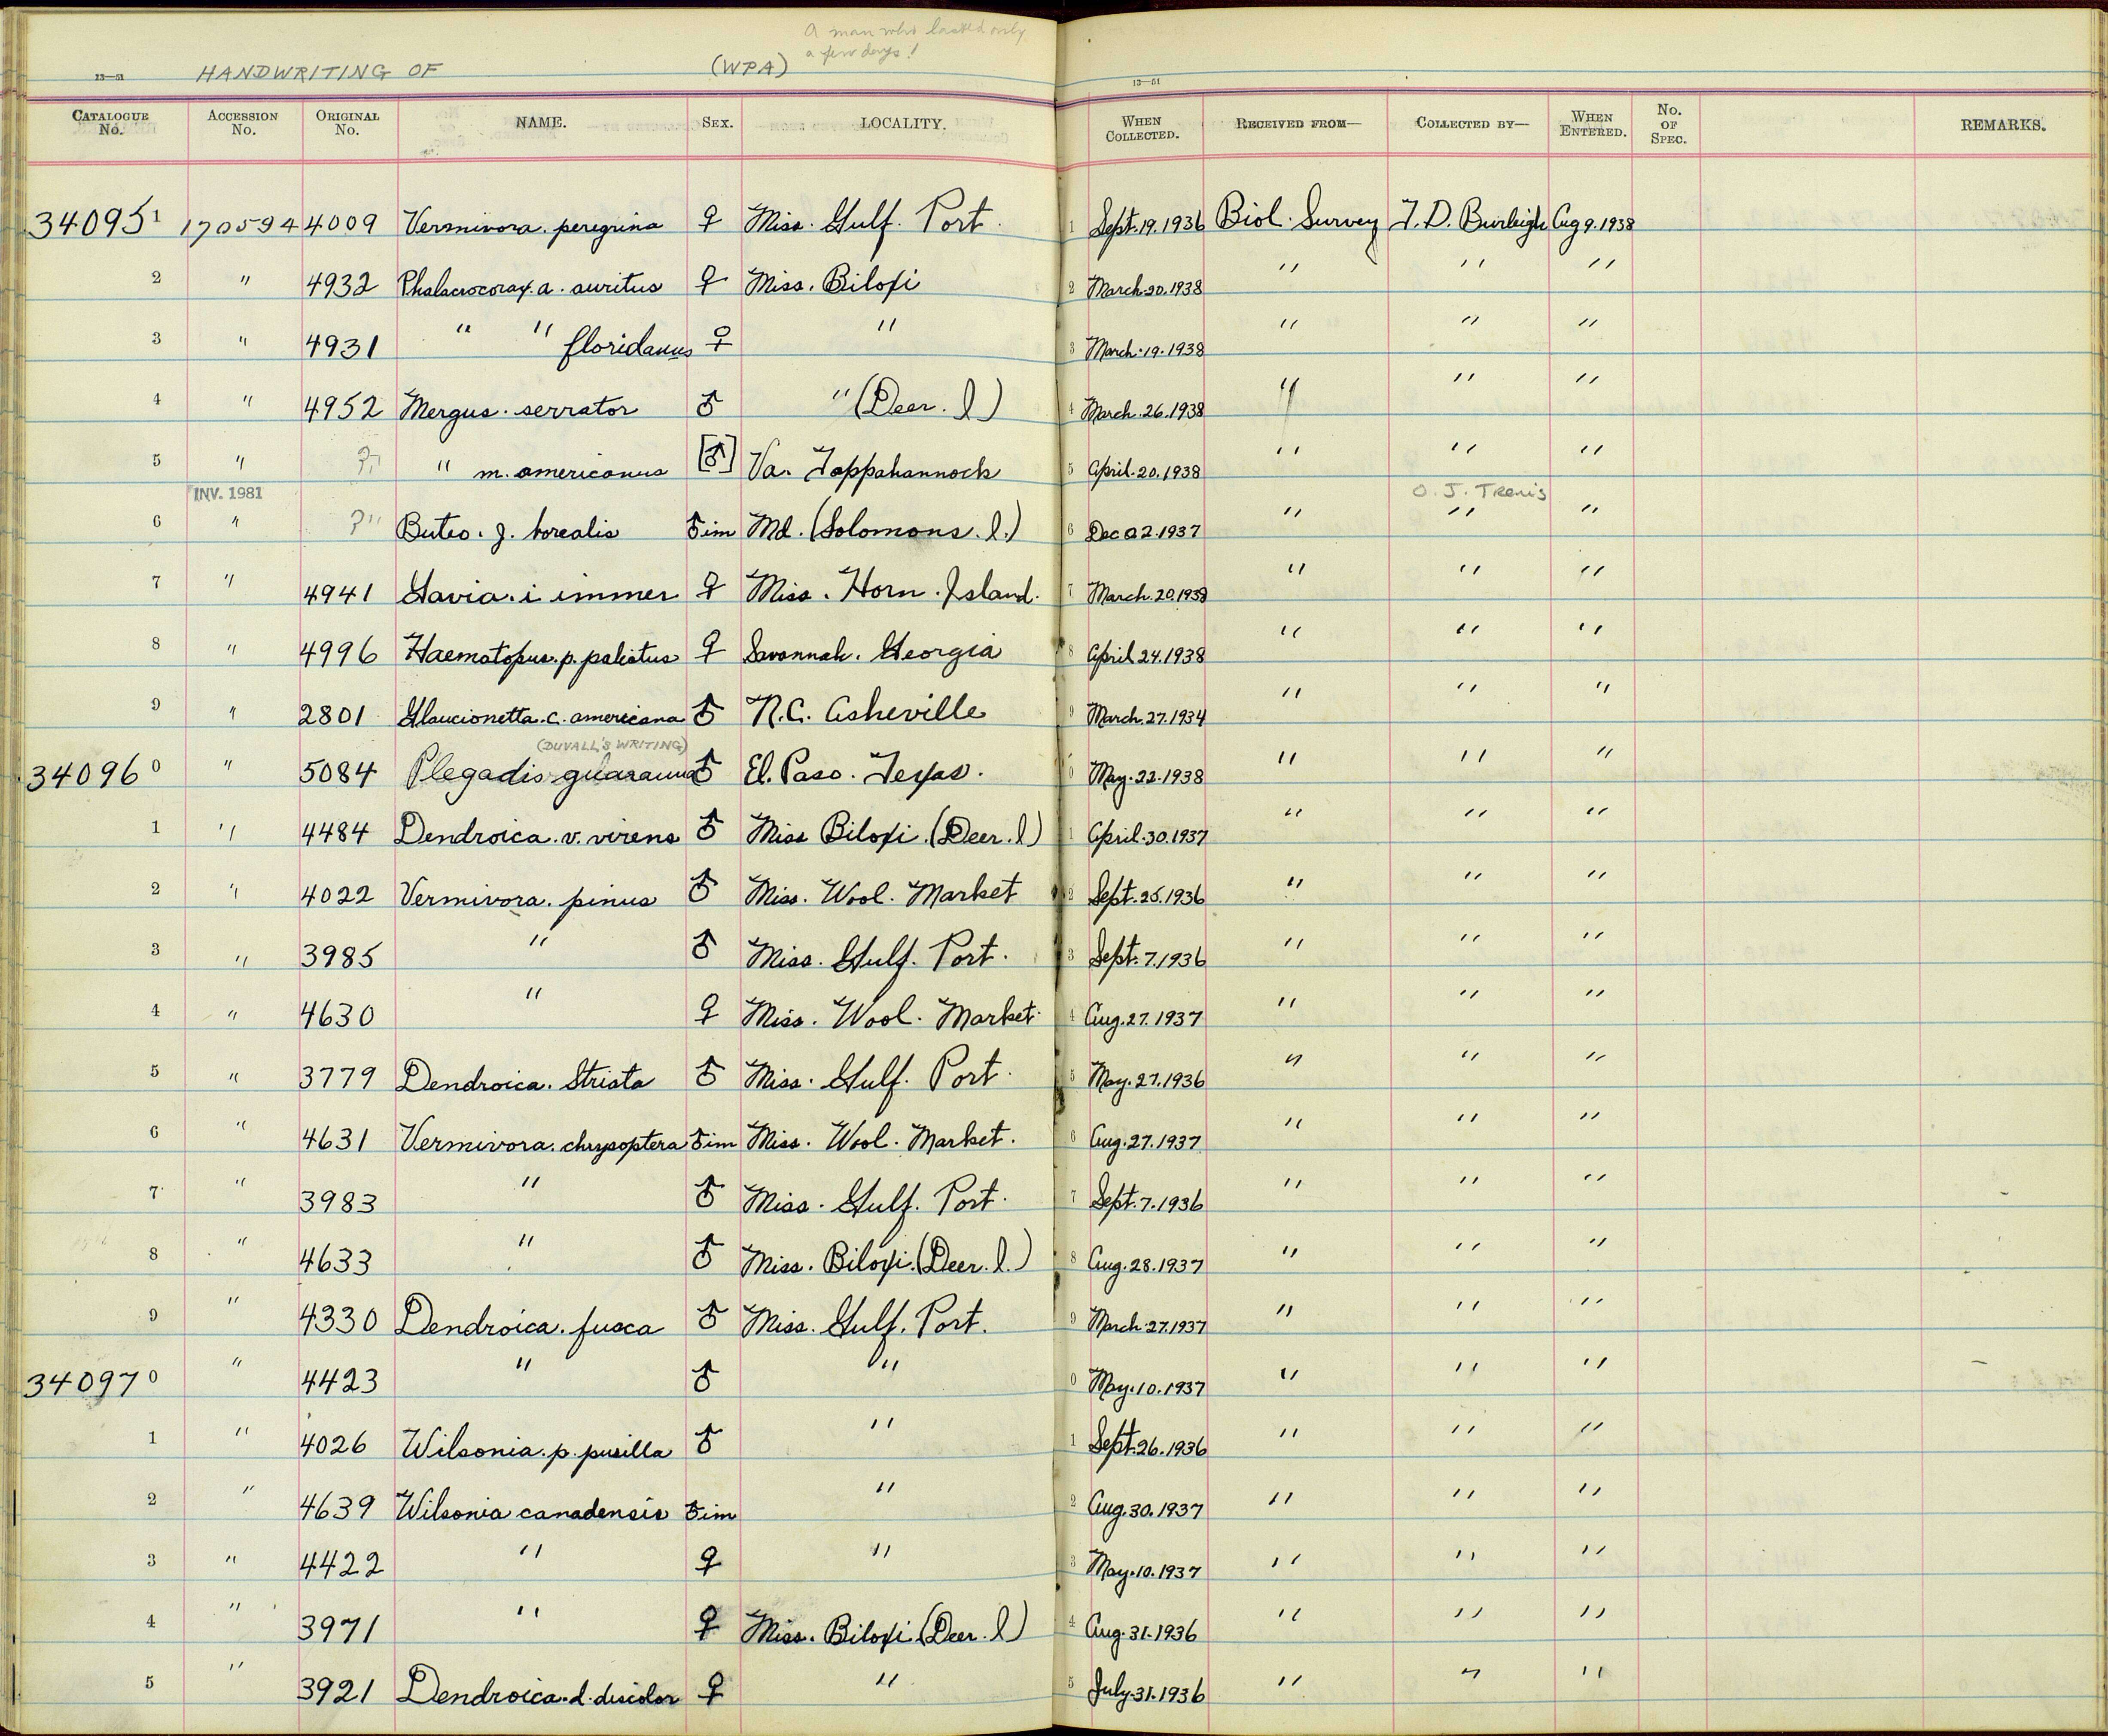 A man who lasted only
a few days!
13—51 HANDWRITING OF (WPA) 13—51
CATALOGUE No. ACCESSION No. ORIGINAL No. NAME. SEX. LOCALITY. WHEN COLLECTED. RECEIVED FROM— COLLECTED BY— WHEN ENTERED. No. OF SPEC. REMARKS.
34095 1 170594 4009 Vermivora. peregrina ♀ Miss. Gulf. Port. 1 Sept. 19. 1936 Biol. Survey T. D. Burleigh Aug 9. 1938
2 " 4932 Phalacrocorax. a. auritus ♀ Miss. Biloxi 2 March. 20. 1938 " " "
3 " 4931 " " floridanus ♀ " 3 March. 19. 1938 " " "
4 " 4952 Mergus. serrator ♂ " (Deer. I.) 4 March. 26. 1938 " " "
5 " ? " m. americanus [♂] Va. Tappahannock 5 April. 20. 1938 " " "
INV. 1981 O. J. Trenis
6 " ? Buteo. j. borealis ♂ im Md. (Solomons. I.) 6 Dec 22. 1937 " " "
7 " 4941 Gavia. i immer ♀ Miss. Horn. Island. 7 March. 20. 1938 " " "
8 " 4996 Haematopus. p. paliatus ♀ Savannah. Georgia 8 April 24. 1938 " " "
9 " 2801 Glaucionetta. c. americana ♂ N.C. Asheville 9 March. 27. 1934 " " "
(DUVALL'S WRITING)
34096 0 " 5084 Plegadis guarauna ♂ El. Paso. Texas. 0 May. 22. 1938 " " "
1 " 4484 Dendroica. v. virens ♂ Miss Biloxi. (Deer. I.) 1 April. 30. 1937 " " "
2 " 4022 Vermivora. pinus ♂ Miss. Wool. Market 2 Sept. 25. 1936 " " "
3 " 3985 " ♂ Miss. Gulf. Port. 3 Sept. 7. 1936 " " "
4 " 4630 " ♀ Miss. Wool. Market. 4 Aug. 27. 1937 " " "
5 " 3779 Dendroica. Striata ♂ Miss. Gulf. Port. 5 May. 27. 1936 " " "
6 " 4631 Vermivora. chrysoptera ♂ im Miss. Wool. Market. 6 Aug. 27. 1937 " " "
7 " 3983 " ♂ Miss. Gulf. Port. 7 Sept. 7. 1936 " " "
8 " 4633 " ♂ Miss. Biloxi. (Deer. I.) 8 Aug. 28. 1937 " " "
9 " 4330 Dendroica. fusca ♂ Miss. Gulf. Port. 9 March. 27. 1937 " " "
34097 0 " 4423 " ♂ " 0 May. 10. 1937 " " "
1 " 4026 Wilsonia. p. pusilla ♂ " 1 Sept. 26. 1936 " " "
2 " 4639 Wilsonia canadensis ♂ im " 2 Aug. 30. 1937 " " "
3 " 4422 " ♀ " 3 May. 10. 1937 " " "
4 " 3971 " ♀ Miss. Biloxi (Deer. I.) 4 Aug. 31. 1936 " " "
5 " 3921 Dendroica. d. discolor ♀ " 5 July. 31. 1936 " " "